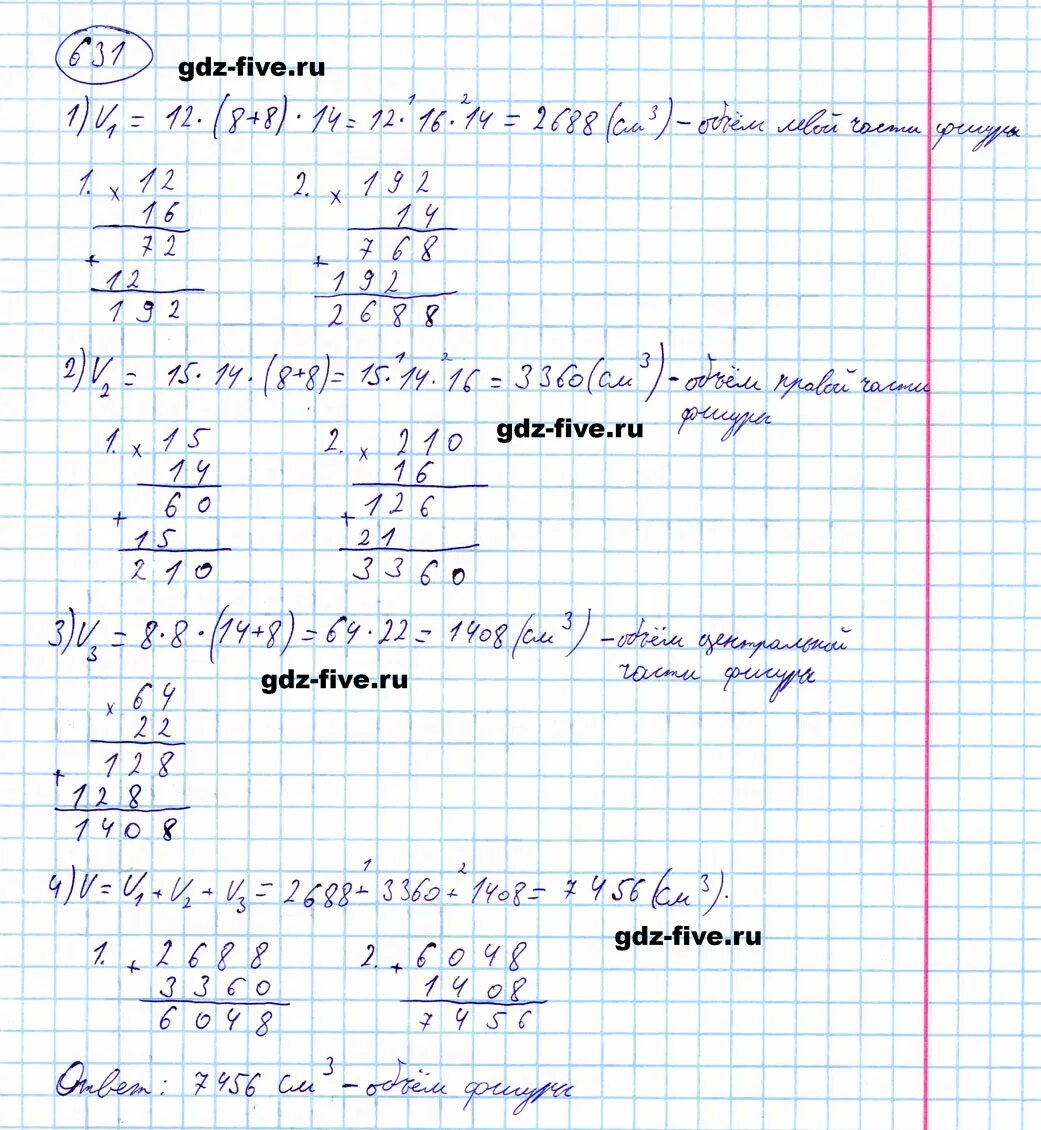 631
gdz-five.ru
1) V₁ = 12·(8+8)·14 = 12·¹16·²14 = 2688 (см³) – объём левой части фигуры
1. × 12   2. × 192
16   14
72   768
+ 12   + 192
192   2688
2) V₂ = 15·14·(8+8) = 15·¹14·²16 = 3360 (см³) – объём правой части
фигуры
gdz-five.ru
1. × 15   2. × 210
14   16
60   126
+ 15   + 21
210   3360
3) V₃ = 8·8·(14+8) = 64·22 = 1408 (см³) – объём центральной
части фигуры
gdz-five.ru
× 64
22
128
+ 128
1408
4) V = V₁ + V₂ + V₃ = 2688 +¹ 3360 +² 1408 = 7456 (см³).
gdz-five.ru
1. + 2688   2. + 6048
3360   1408
6048   7456
Ответ: 7456 см³ – объём фигуры